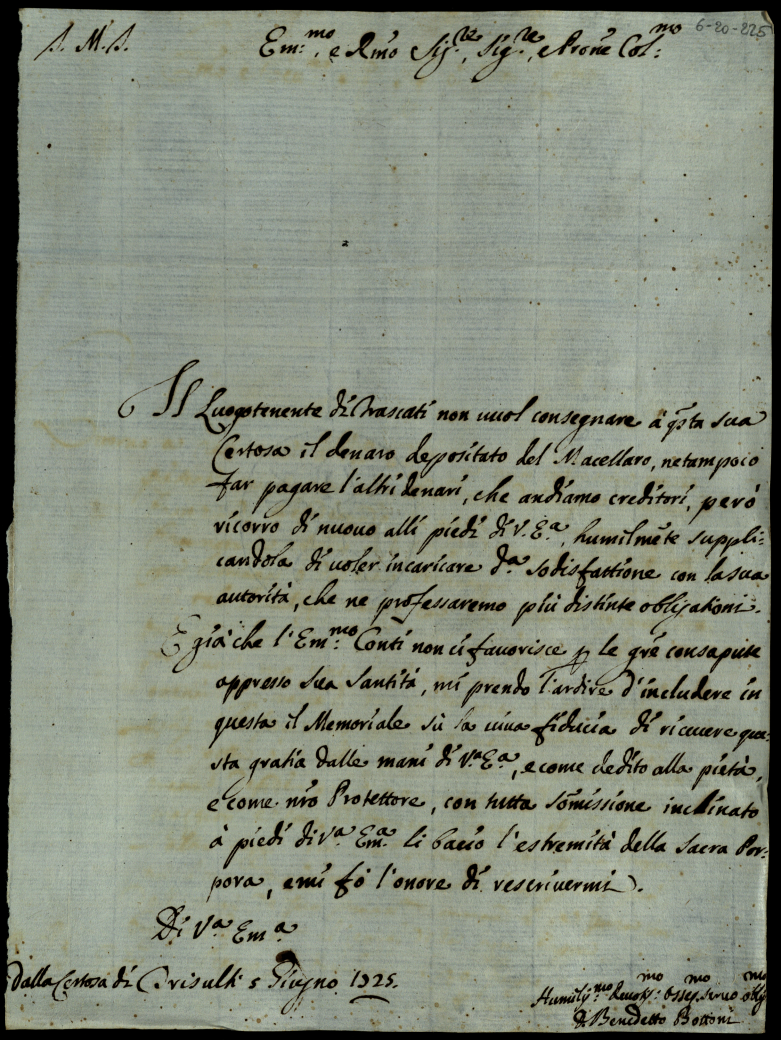 6-20-225
J. M. J.
Em:mo, e Rmo Sig:re, Sig:re, e Prone Col:mo
Il Luogotenente di Frascati non vuol consegnare à qsta sua
Certosa il denaro depositato del Macellaro, netampoco
far pagare l'altri denari, che andiamo creditori, però
ricorro di nuovo alli piedi di V. E.a, humilmête suppli:
candola di voler incaricare d.a sodisfattione con la sua
autorità, che ne professaremo più distinte obligationi.
E già che l'Em:mo Conti non ci favorisce p le grê consapute
appresso sua Santità, mi prendo l'ardire d'includere in
questa il Memoriale sù la viva fiducia di ricevere que:
sta gratia dalle mani di V.a E.a, e come dedito alla pietà,
e come nro Protettore, con tutta sômissione inclinato
à piedi di V.a Em.a li bacio l'estremità della Sacra Por:
pora, e mi fò l'onore di rescrivermi
Di V.a Em.a
Dalla Certosa di Trisulti 5 Giugno 1725.
Humiliss:mo Devotis:mo Osseq.mo servo obl:mo
D. Benedetto Bottoni